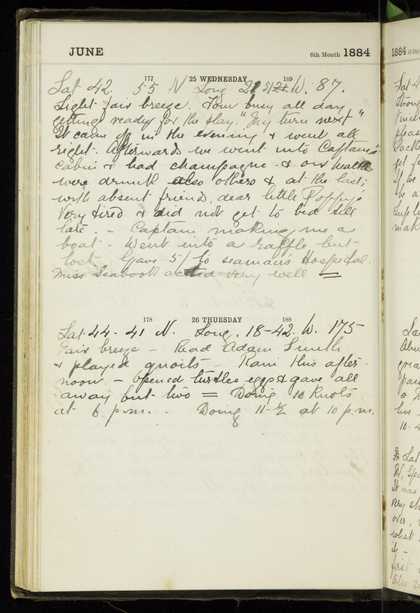 JUNE 6th Month 1884
177 25 WEDNESDAY 189
Lat 42. 55 N Long 21 W. 87.
Light fair breeze. Tom busy all day
getting ready for the play. "My turn next"
It came off in the evening & went all
right. Afterwards we went into Captain's
cabin & had champagne & our healths
were drunk also others & at the last
with absent friends, dear little Poppy's
Very tired & did not get to bed till
late. - Captain making me a
boat. Went into a raffle but
lost. Gave 5/ to seaman's Hospital.
Miss Seabrook acted very well =
178 26 THURSDAY 188
Lat 44-41 N. Long. 18-42. W. 175
Fair breeze - Read Adam Smith
& played quoits - Rain this after-
noon - opened turtles eggs & gave all
away but two = Doing 10 Knots
at 6 p.m. - Doing 11-½ at 10 p.m.
1884